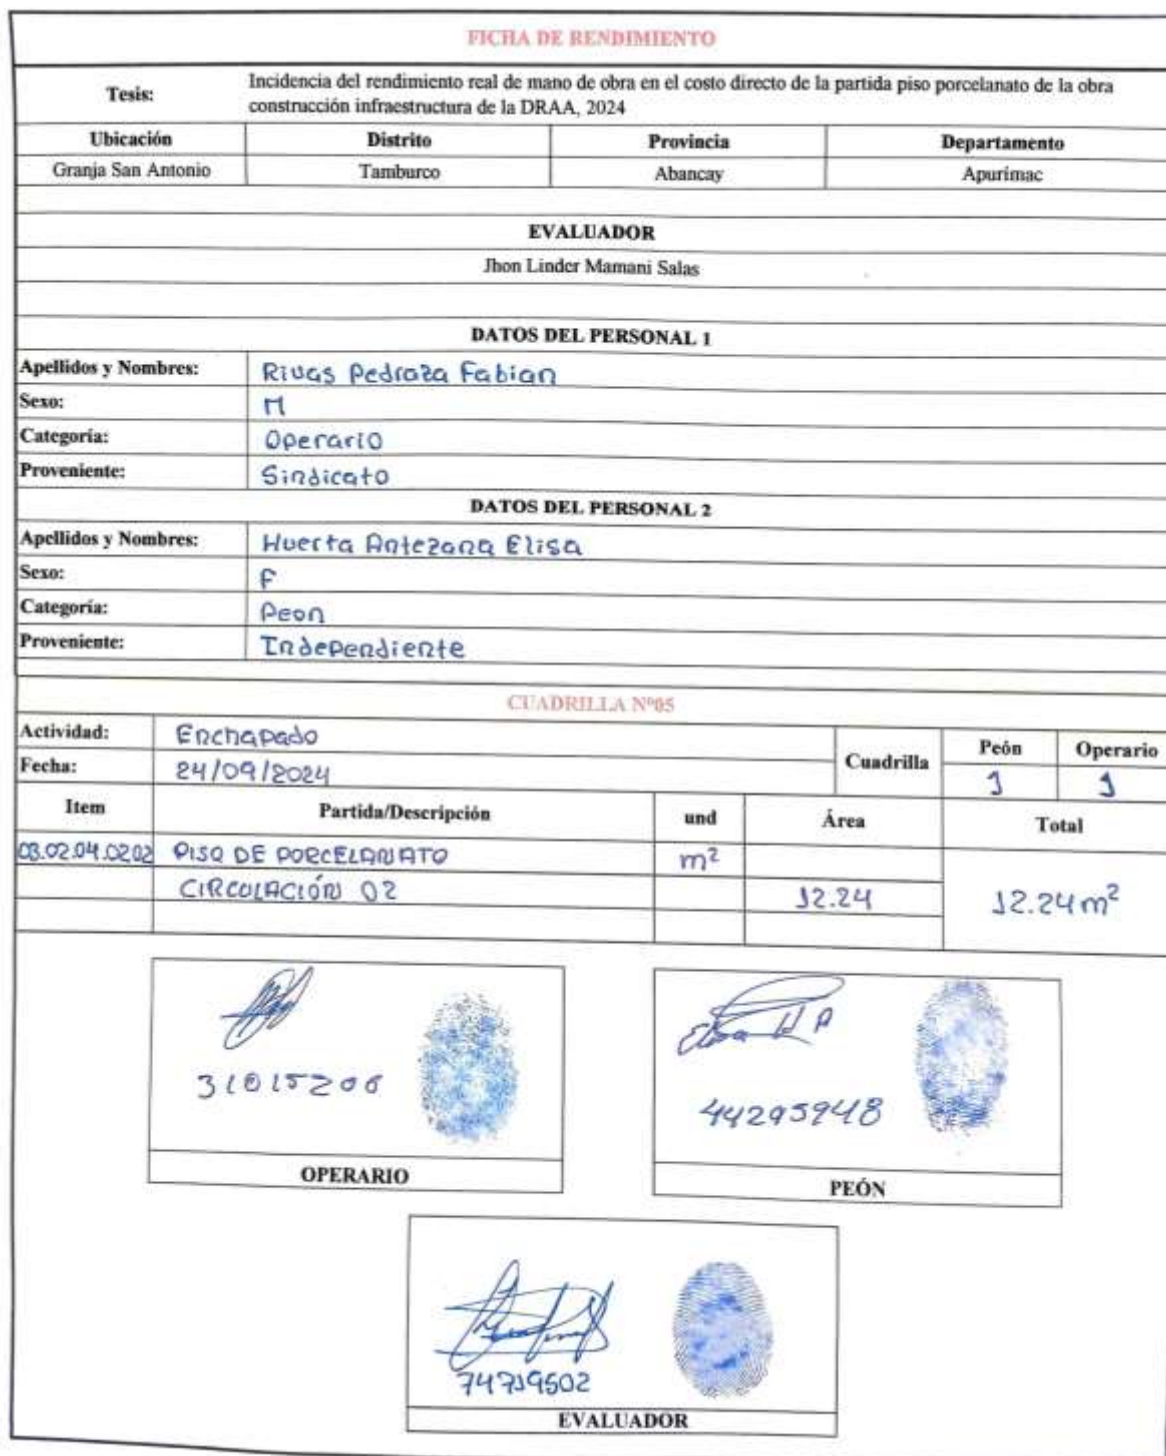 FICHA DE RENDIMIENTO
Tesis: Incidencia del rendimiento real de mano de obra en el costo directo de la partida piso porcelanato de la obra
construcción infraestructura de la DRAA, 2024
Ubicación Distrito Provincia Departamento
Granja San Antonio Tamburco Abancay Apurímac
EVALUADOR
Jhon Linder Mamani Salas
DATOS DEL PERSONAL 1
Apellidos y Nombres: Rivas Pedraza Fabian
Sexo: M
Categoría: Operario
Proveniente: Sindicato
DATOS DEL PERSONAL 2
Apellidos y Nombres: Huerta Antezana Elisa
Sexo: F
Categoría: Peon
Proveniente: Independiente
CUADRILLA Nº05
Actividad: Enchapado
Fecha: 24/09/2024
Cuadrilla Peón Operario
1 1
Item Partida/Descripción und Área Total
03.02.04.0202 PISO DE PORCELANATO m²
CIRCULACIÓN 02 12.24 12.24 m²
Elisa H A
31015206
44295948
OPERARIO
PEÓN
74719502
EVALUADOR